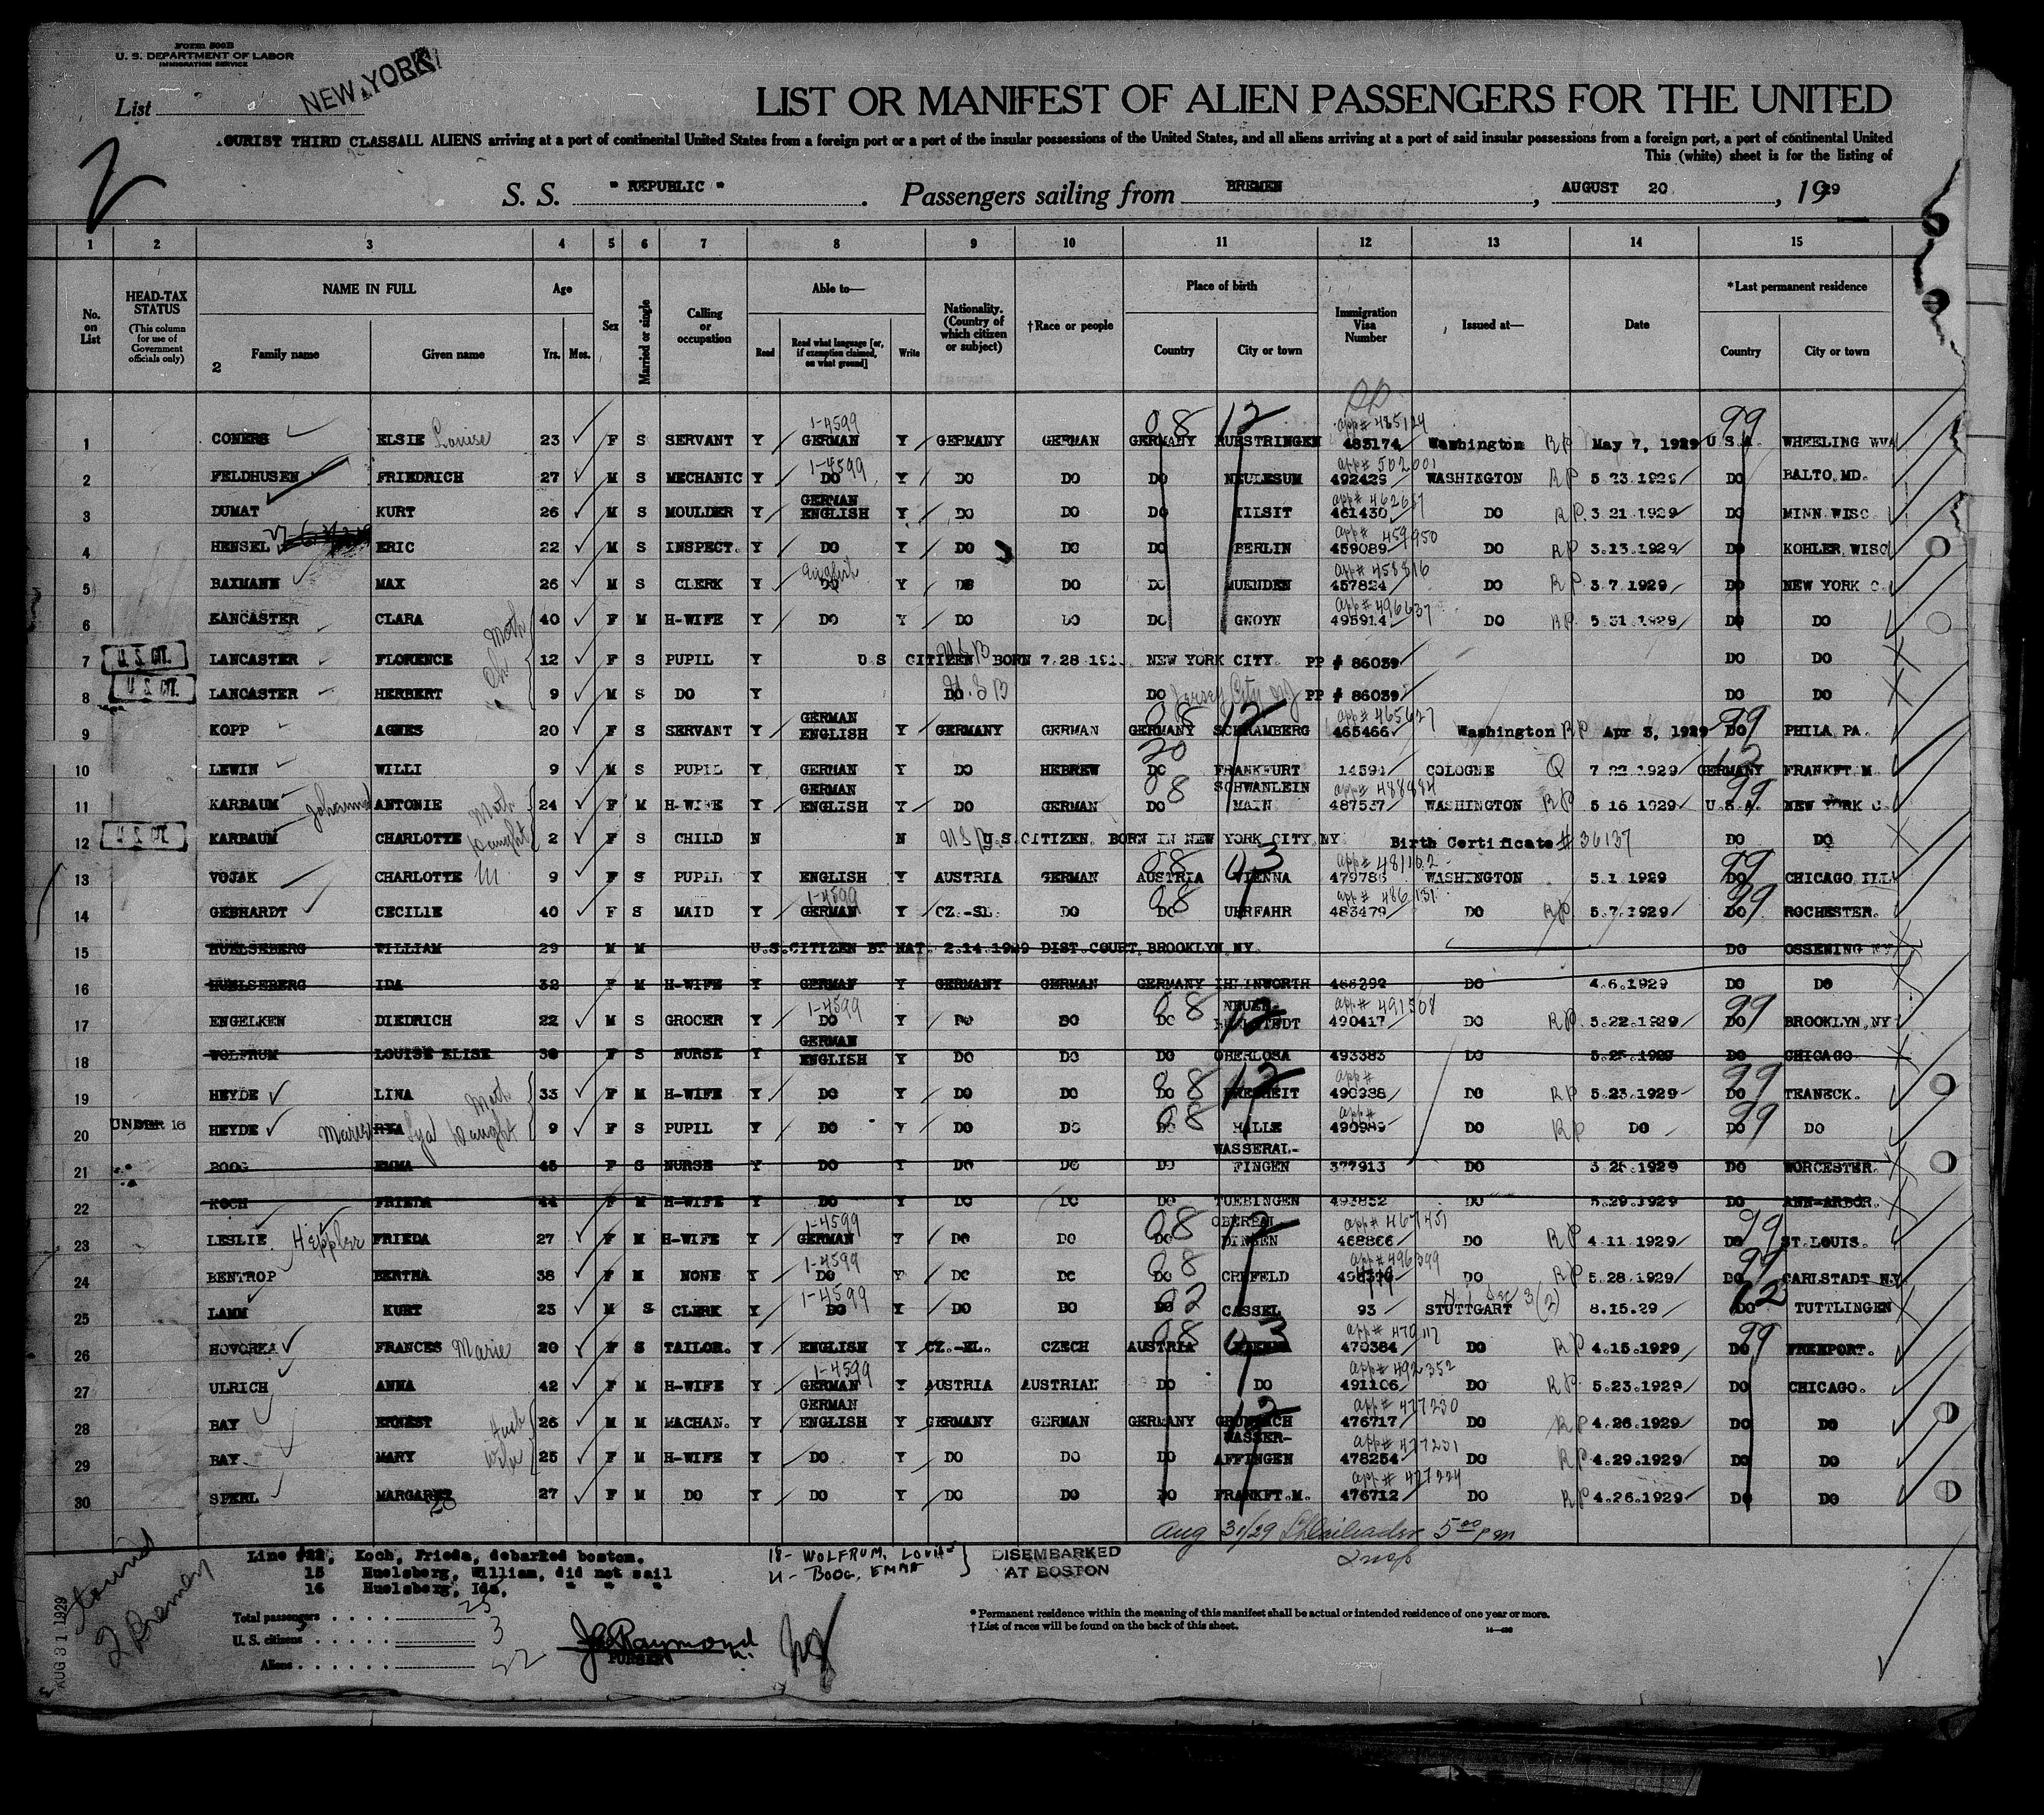 Form 500B
U. S. DEPARTMENT OF LABOR
IMMIGRATION SERVICE
List
NEW YORK
2
LIST OR MANIFEST OF ALIEN PASSENGERS FOR THE UNITED
TOURIST THIRD CLASS ALL ALIENS arriving at a port of continental United States from a foreign port or a port of the insular possessions of the United States, and all aliens arriving at a port of said insular possessions from a foreign port, a port of continental United
This (white) sheet is for the listing of
S. S. " REPUBLIC " . Passengers sailing from BREMEN , AUGUST 20 , 1929
1 2 3 4 5 6 7 8 9 10 11 12 13 14 15
No. on List
HEAD-TAX STATUS (This column for use of Government officials only)
NAME IN FULL Family name Given name
2
Age Yrs. Mos.
Sex
Married or single
Calling or occupation
Able to— Read Read what language [or, if exemption claimed, on what ground] Write
Nationality. (Country of which citizen or subject)
†Race or people
Place of birth Country City or town
Immigration Visa Number
Issued at—
Date
*Last permanent residence Country City or town
1 CONERS ELSIE Louise 23 F S SERVANT Y 1-4599 GERMAN Y GERMANY GERMAN GERMANY 08 12 RUESTRINGEN app# 485124 483174 Washington RP May 7, 1929 99 U.S.A. WHEELING WVA
2 FELDHUSEN FRIEDRICH 27 M S MECHANIC Y 1-4599 DO Y DO DO DO NEULESUM app# 502001 492429 WASHINGTON RP 5 23.1929 DO BALTO. MD.
3 DUMAT KURT 26 M S MOULDER Y GERMAN ENGLISH Y DO DO DO TILSIT app# 462657 461430 DO RP 3 21 1929 DO MINN WISC
4 HENSEL ERIC 22 M S INSPECT. Y DO Y DO DO DO BERLIN app# 459950 459089 DO RP 3.13.1929 DO KOHLER WISC
5 BAXMANN MAX 26 M S CLERK Y English DO Y DO DO DO MUENDEN app# 458816 457824 DO RP 3 7.1929 DO NEW YORK C.
6 LANCASTER CLARA Moth 40 F M H-WIFE Y DO Y DO DO DO GNOYN app# 496637 495914 DO RP 5.31.1929 DO DO
7 U. S. CIT. LANCASTER FLORENCE Ch 12 F S PUPIL Y U S CITIZEN BORN 7.28 191 NEW YORK CITY. PP # 86039 DO DO
8 U. S. CIT. LANCASTER HERBERT 9 M S DO Y DO USB DO Jersey City NJ PP # 86039 DO DO
9 KOPP AGNES 20 F S SERVANT Y GERMAN ENGLISH Y GERMANY GERMAN GERMANY 08 12 SCHRAMBERG app# 465627 465466 Washington RP Apr 3, 1929 99 DO PHILA PA.
10 LEWIN WILLI 9 M S PUPIL Y GERMAN Y DO HEBREW DO 20 FRANKFURT 14594 COLOGNE Q 7 22 1929 GERMANY 12 FRANKFT M.
11 KARBAUM Johanna ANTONIE Moth 24 F M H-WIFE Y GERMAN ENGLISH Y DO GERMAN DO 08 SCHWANLEIN MAIN app# 488484 487537 WASHINGTON RP 5 16 1929 99 U.S.A. NEW YORK C.
12 U. S. CIT. KARBAUM CHARLOTTE Daught 2 F S CHILD N N USB U.S.CITIZEN. BORN IN NEW YORK CITY NY Birth Certificate # 36137 DO DO
13 VOJAK CHARLOTTE M 9 F S PUPIL Y ENGLISH Y AUSTRIA GERMAN AUSTRIA 08 03 VIENNA app# 481102 479786 WASHINGTON 5.1 1929 99 DO CHICAGO ILL
14 GEBHARDT CECILIE 40 F S MAID Y 1-4599 GERMAN Y CZ.-SL. DO DO 08 URFAHR app# 486151 483479 DO RP 5.7.1929 99 DO ROCHESTER.
15 HUELSEBERG WILLIAM 29 M M U.S.CITIZEN BY NAT. 2.14.1929 DIST.COURT BROOKLYN NY. DO OSSENING NY
16 HUELSEBERG IDA 32 F M H-WIFE Y GERMAN Y GERMANY GERMAN GERMANY IHLINWORTH 466292 DO 4.6.1929 DO DO
17 ENGELKEN DIEDRICH 22 M S GROCER Y 1-4599 DO Y DO DO DO 08 12 NEUEN app# 491508 490417 DO RP 5.22.1929 99 DO BROOKLYN NY
18 WOLFRUM LOUISE ELISE 30 F S NURSE Y GERMAN ENGLISH Y DO DO DO OBERLOSA 493383 DO 5.25.1929 DO CHICAGO
19 HEYDE LINA Moth 33 F M H-WIFE Y DO Y DO DO DO 08 12 app# 490988 DO RP 5.23.1929 99 DO TEANECK.
20 UNDER 16 HEYDE Marie Lya Daught 9 F S PUPIL Y DO Y DO DO DO 08 HALLE app# 490989 DO RP DO 99 DO DO
21 BOOG EMMA 45 F S NURSE Y DO Y DO DO DO WASSERAL-FINGEN 377913 DO 3 28.1929 DO WORCESTER.
22 KOCH FRIEDA 44 F M H-WIFE Y DO Y DO DO DO TUEBINGEN 493852 DO 5.29.1929 DO ANN-ARBOR.
23 LESLIE Heppler FRIEDA 27 F M H-WIFE Y 1-4599 GERMAN Y DO DO DO 08 12 DINGEN app# 467451 468866 DO RP 4.11.1929 99 DO ST.LOUIS.
24 BENTROP BERTHA 38 F M NONE Y 1-4599 DO Y DO DO DO 08 CREFELD app# 496399 DO RP 5.28.1929 99 DO CARLSTADT N.Y
25 LAMM KURT 23 M S CLERK Y 1-4599 DO Y DO DO DO 02 CASSEL 93 STUTTGART 3(2) 8.15.29 12 DO TUTTLINGEN
26 HOVORKA FRANCES Marie 20 F S TAILOR. Y ENGLISH Y CZ.-SL. CZECH AUSTRIA 08 03 VIENNA app# 470117 470384 DO RP 4.15.1929 99 DO FREEPORT.
27 ULRICH ANNA 42 F M H-WIFE Y 1-4599 GERMAN Y AUSTRIA AUSTRIAN DO DO app# 492352 491106 DO RP 5.23.1929 DO CHICAGO.
28 BAY ERNEST Husb 26 M M MACHAN. Y GERMAN ENGLISH Y GERMANY GERMAN GERMANY 12 app# 477230 476717 DO RP 4.26.1929 DO DO
29 BAY MARY Wife 25 F M H-WIFE Y DO Y DO DO DO WASSER-AFFINGEN app# 477231 478254 DO RP 4.29.1929 DO DO
30 SPERL MARGARET 27 F M DO Y DO Y DO DO DO FRANKFT.M. app# 477224 476712 DO RP 4.26.1929 DO DO
Aug 31/29 5 00 pm
Insp
Line #22, Koch, Frieda, debarked boston.
15 Huelsberg, William, did not sail
16 Huelsberg, Ida, " " "
18- WOLFRUM, LOUISE
21- BOOG, EMMA
DISEMBARKED
AT BOSTON
Total passengers 25
U. S. citizens 3
Aliens 22
J Raymond
PURSER
* Permanent residence within the meaning of this manifest shall be actual or intended residence of one year or more.
† List of races will be found on the back of this sheet.
AUG 31 1929
2 Bremen